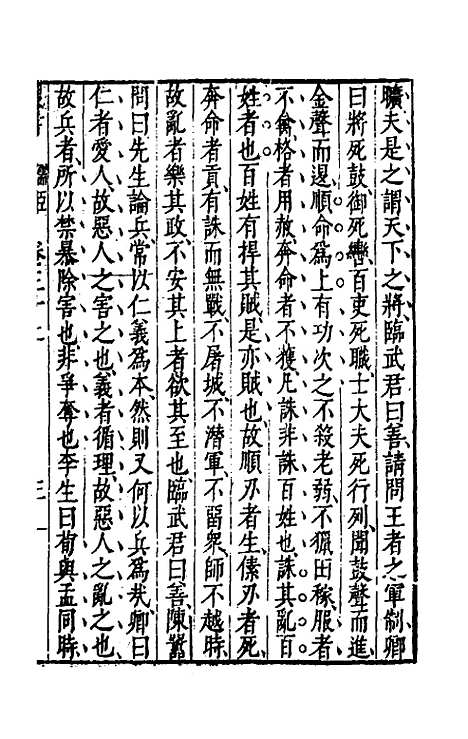 曠夫是之謂天下之將臨武君曰善請問王者之軍制卿
曰將死鼓御死轡百吏死職士大夫死行列聞鼓聲而進
金聲而退順命為上有功次之不殺老弱不獵田稼服者
不禽格者用赦奔命者不獲凡誅非誅百姓也誅其亂百
姓者也百姓有捍其賊是亦賊也故順刃者生傃刃者死
奔命者貢有誅而無戰不屠城不潛軍不畱衆師不越時
故亂者樂其政不安其上者欲其至也臨武君曰善陳嚻
問曰先生論兵常以仁義為本然則又何以兵為哉卿曰
仁者愛人故惡人之害之也義者循理故惡人之亂之也
故兵者所以禁暴除害也非爭奪也李生曰荀與孟同時